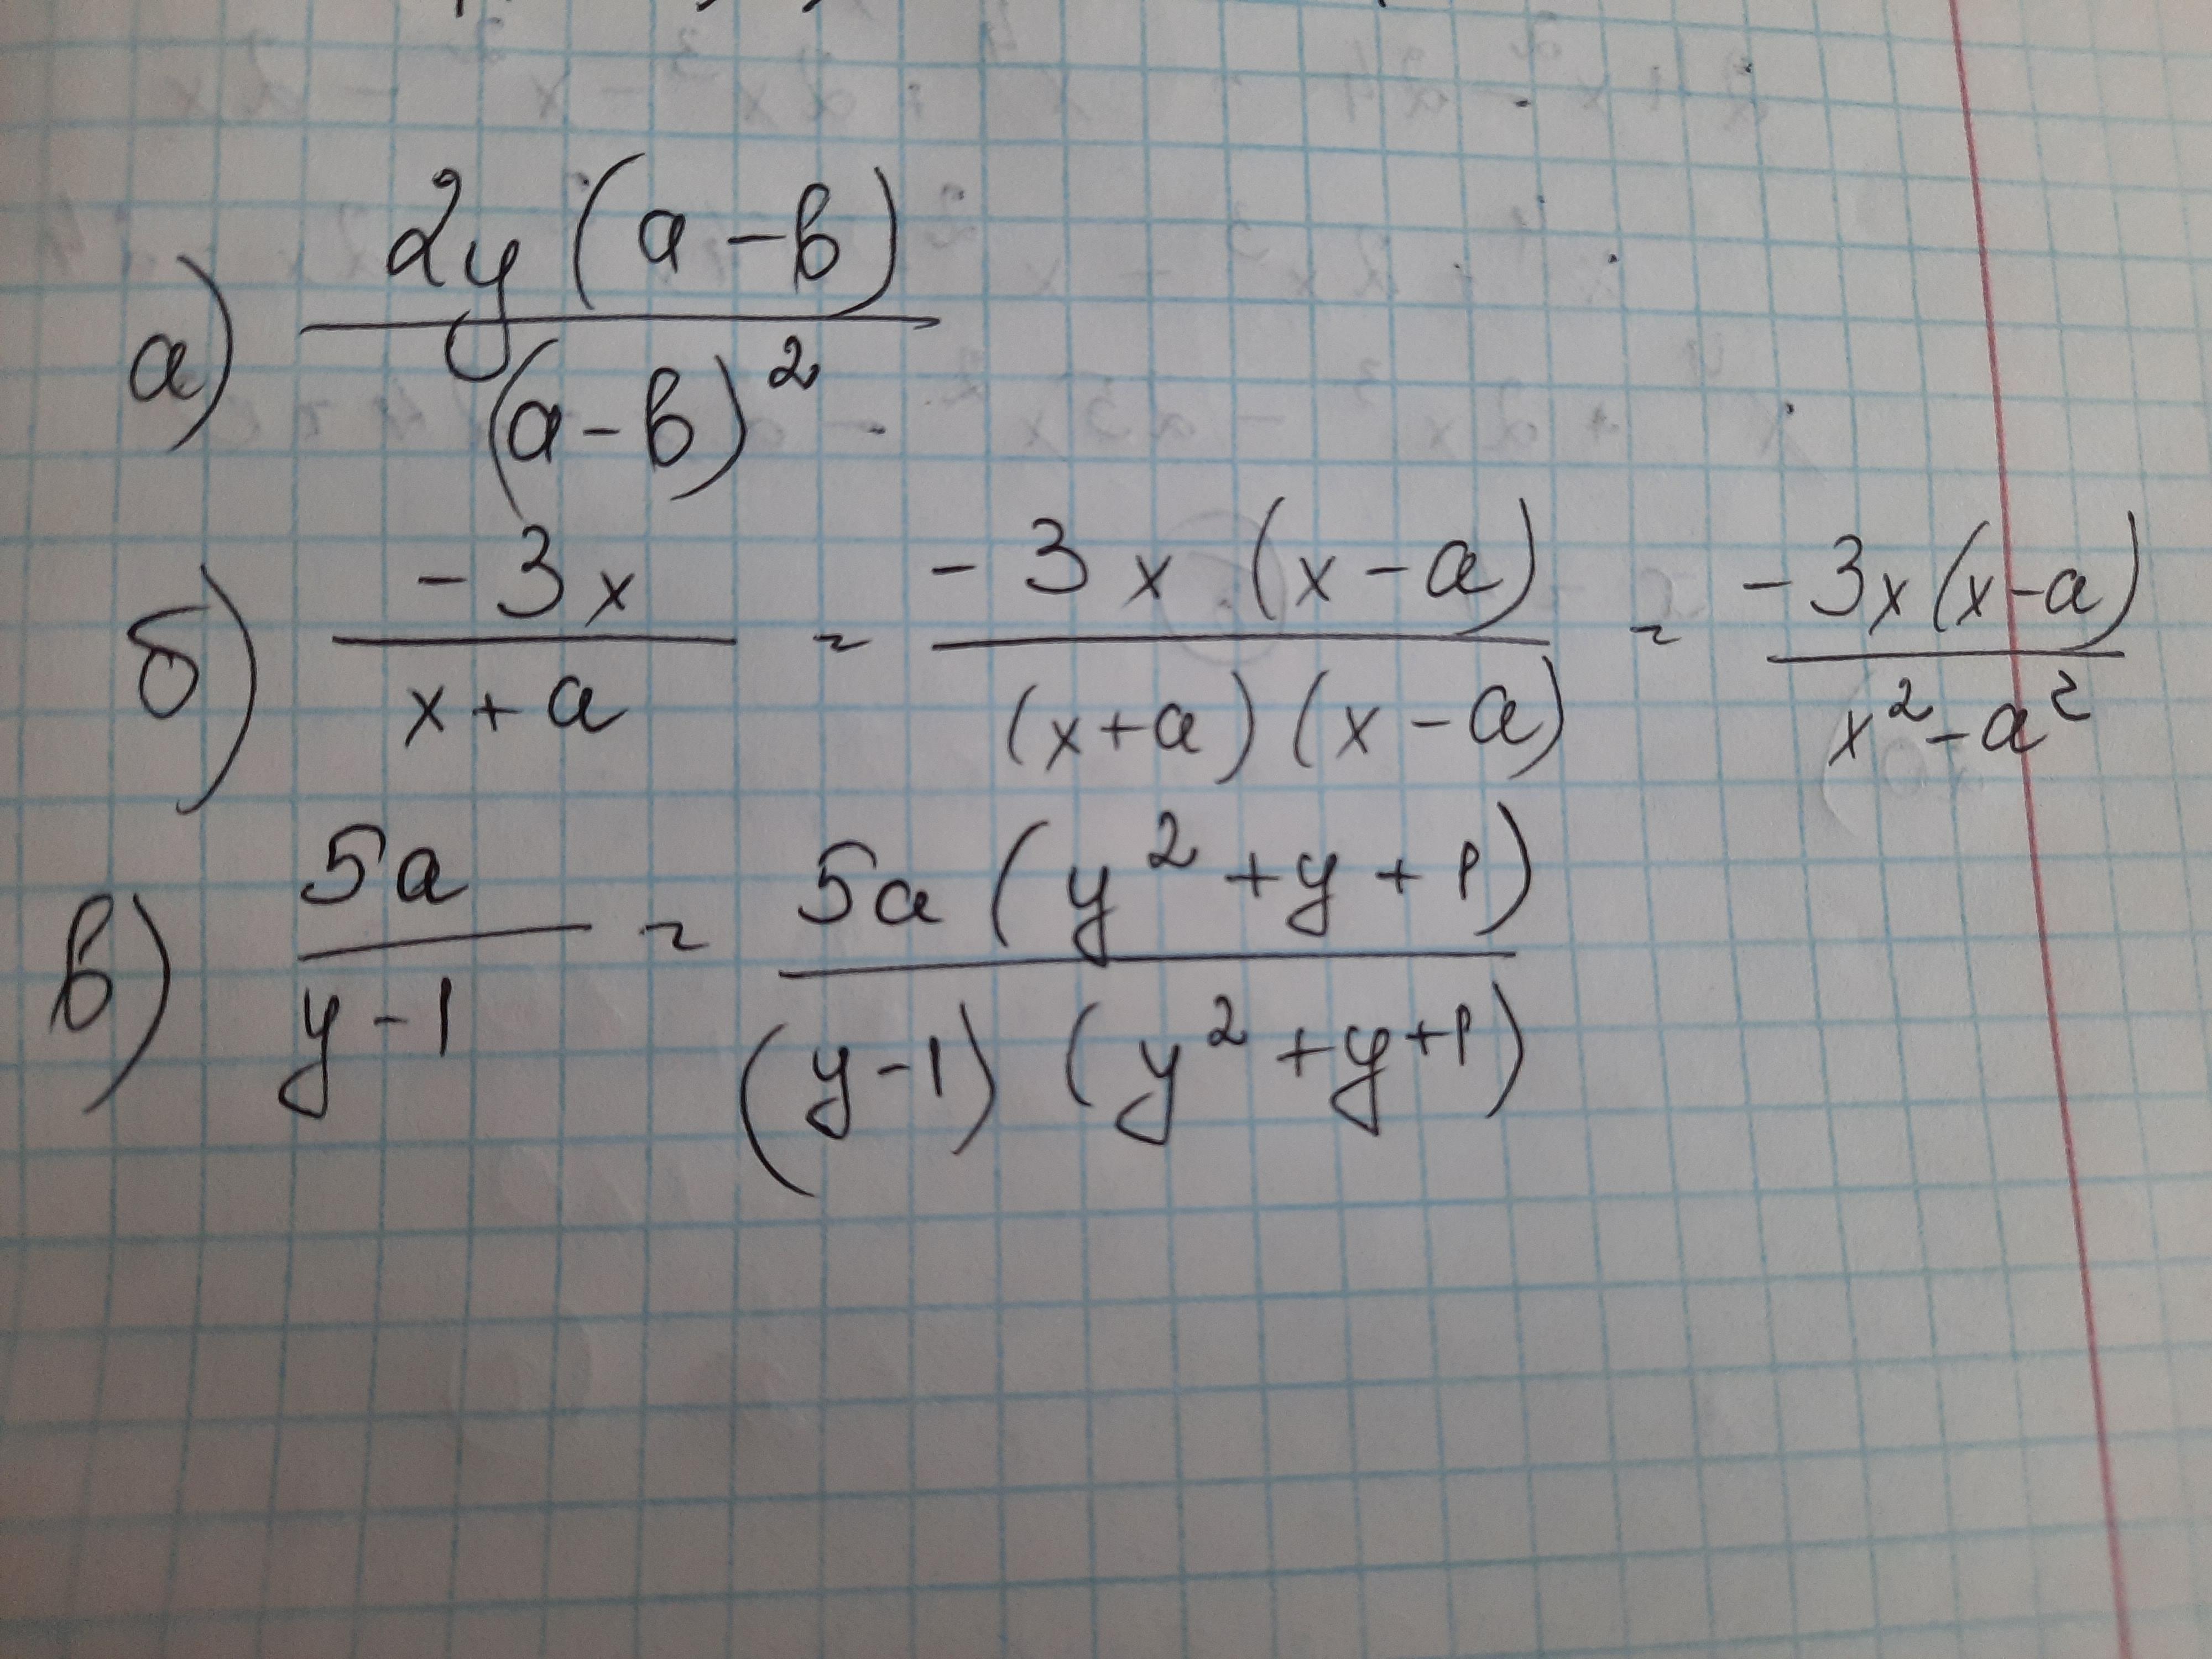 а) 2y(a-b) / (a-b)²
б) -3x / x+a = -3x(x-a) / (x+a)(x-a) = -3x(x-a) / x²-a²
в) 5a / y-1 = 5a(y²+y+1) / (y-1)(y²+y+1)